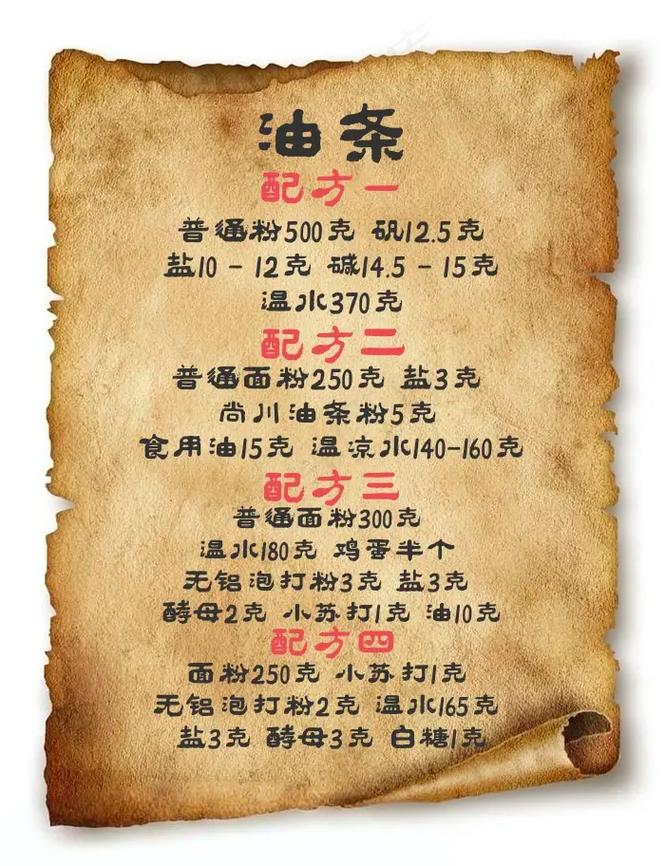 油条
配方一
普通粉500克 矾12.5克
盐10 - 12克 碱14.5 - 15克
温水370克
配方二
普通面粉250克 盐3克
尚川油条粉5克
食用油15克 温凉水140-160克
配方三
普通面粉300克
温水180克 鸡蛋半个
无铝泡打粉3克 盐3克
酵母2克 小苏打1克 油10克
配方四
面粉250克 小苏打1克
无铝泡打粉2克 温水165克
盐3克 酵母3克 白糖1克